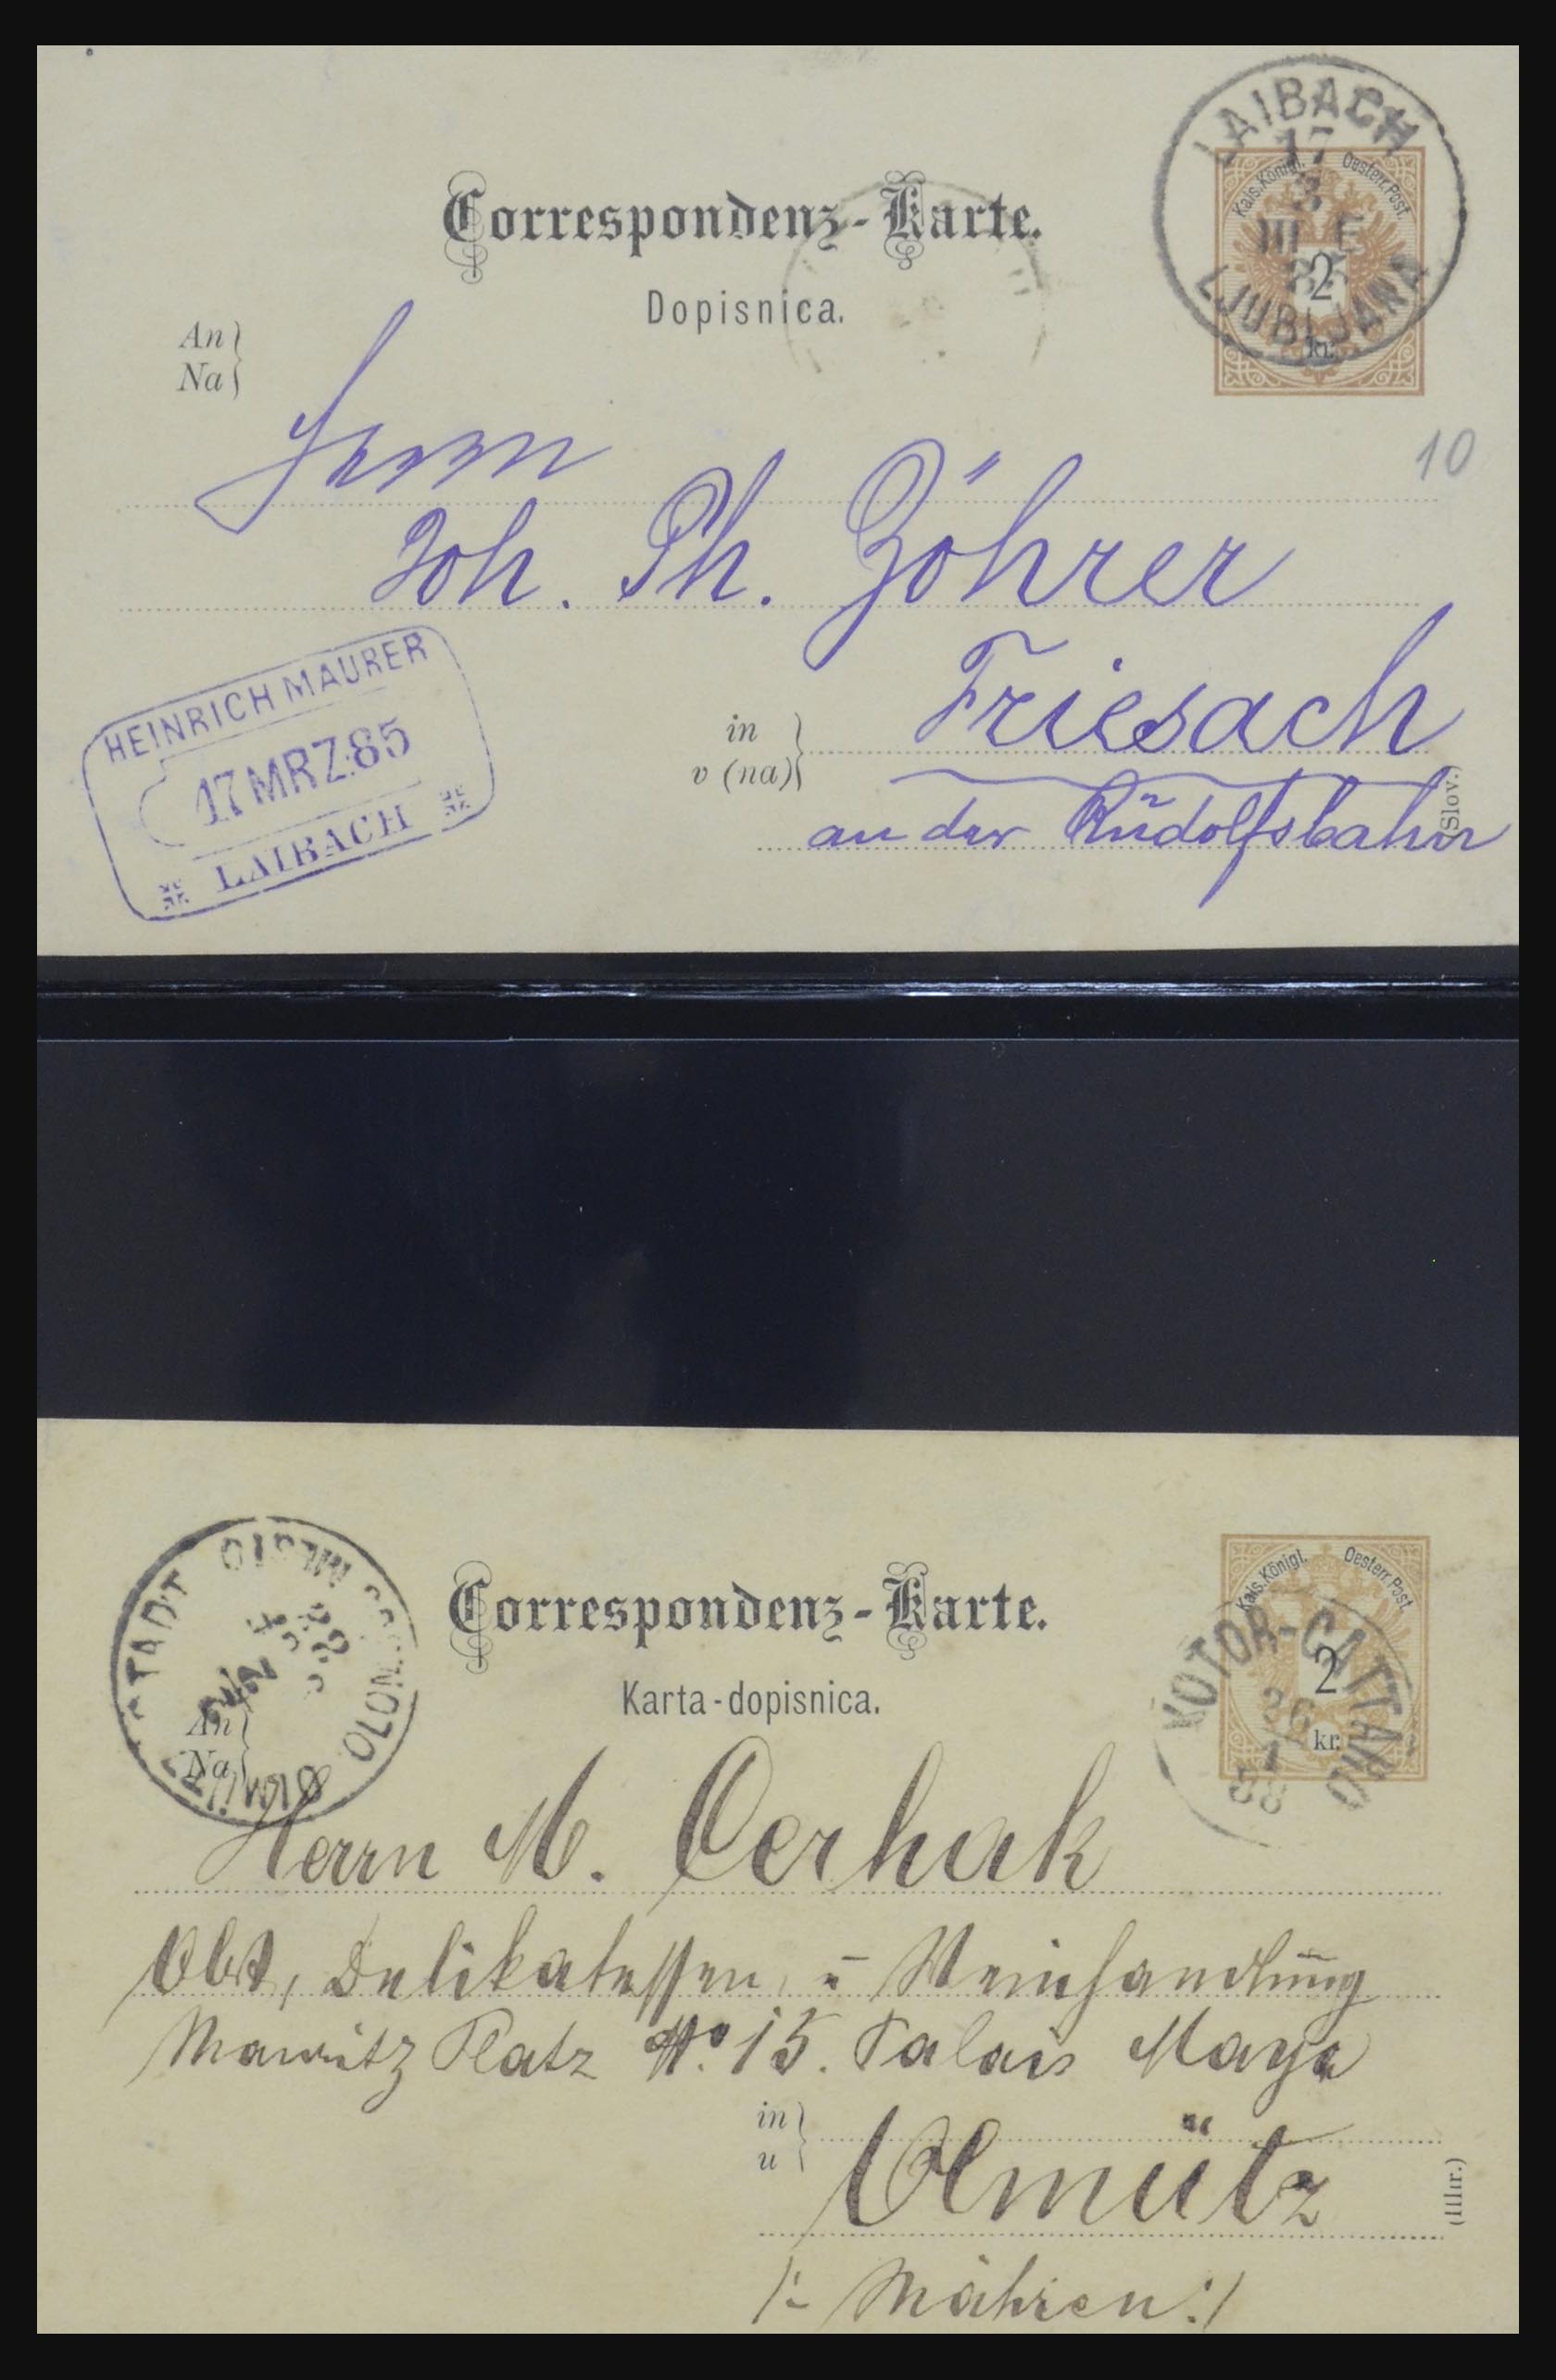 LAIBACH
17
3
III E
85
LJUBLJANA
Kais. Königl. Oesterr. Post.
2
kr.
Correspondenz-Karte.
Dopisnica.
An
Na
10
Herrn
Joh. Ph. Zöhrer
HEINRICH MAURER
17 MRZ. 85
LAIBACH
in
v (na)
Friesach
an der Rudolfsbahn
(Slov.)
OLMÜTZ STADT OLOMOUC MĚSTO
Kais. Königl. Oesterr. Post.
2
kr.
KOTOR-CATTARO
26
1
88
Correspondenz-Karte.
Karta-dopisnica.
An
Na
Herrn M. Cerhak
Obst, Delikatessen, u Weinhandlung
Mauritz Platz No. 15. Palais
in
u
Olmütz
(Illir.)
/: Mähren :/